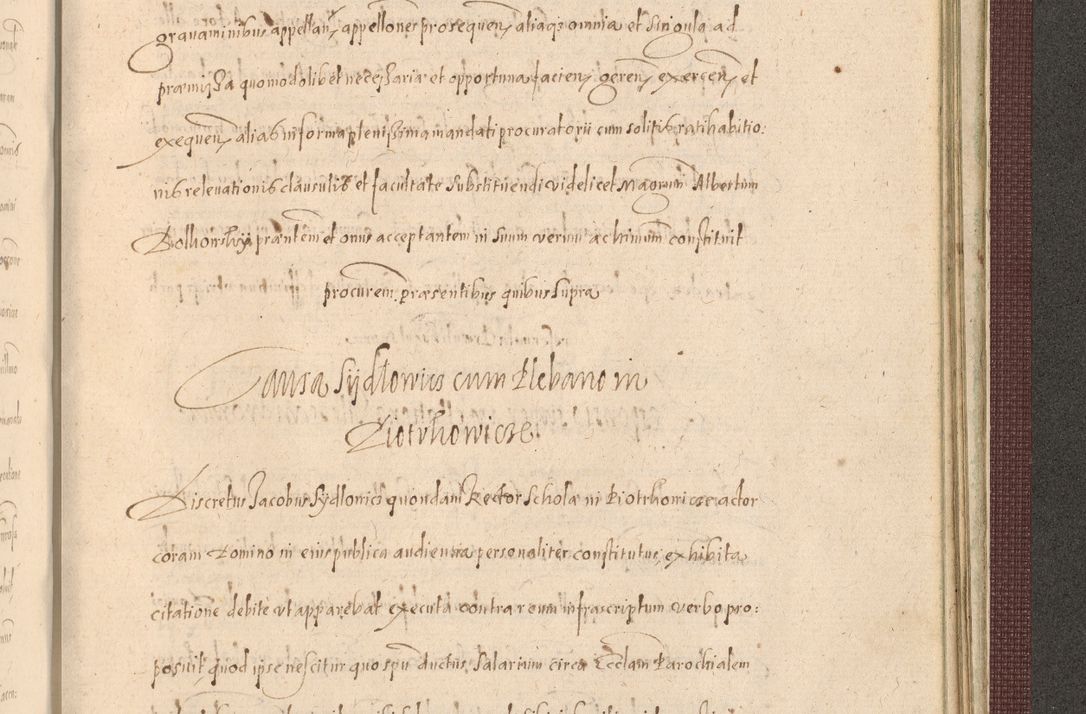 gravaminibus appellan. appellones prosequen. aliaqs omnia et singula ad
præmissa quomodolibet necessaria et opportuna facien. geren. exercen. et
exequen. alias in forma plenissima mandati procuratorii cum solitis ratihabitio:
nis relevationis clausulis et facultate substituendi videlicet Magrum Albertum
præntem et onus acceptantem in suum verum ac ltimum constituit
procurem. præsentibus quibus supra
Causa Sydlowius cum Plebano in
Piotrkowicze.
Discretus Jacobus Sydlonics quondam Rector Scholæ in Piotrkowicze actor
coram Domino in eius publica audientia personaliter constitutus, exhibita
citatione debite ut apparebat executa contra reum infrascriptum verbo pro:
posuit quod ipse nescitur quo spu ductus, salarium circa Ecclam Parochialem